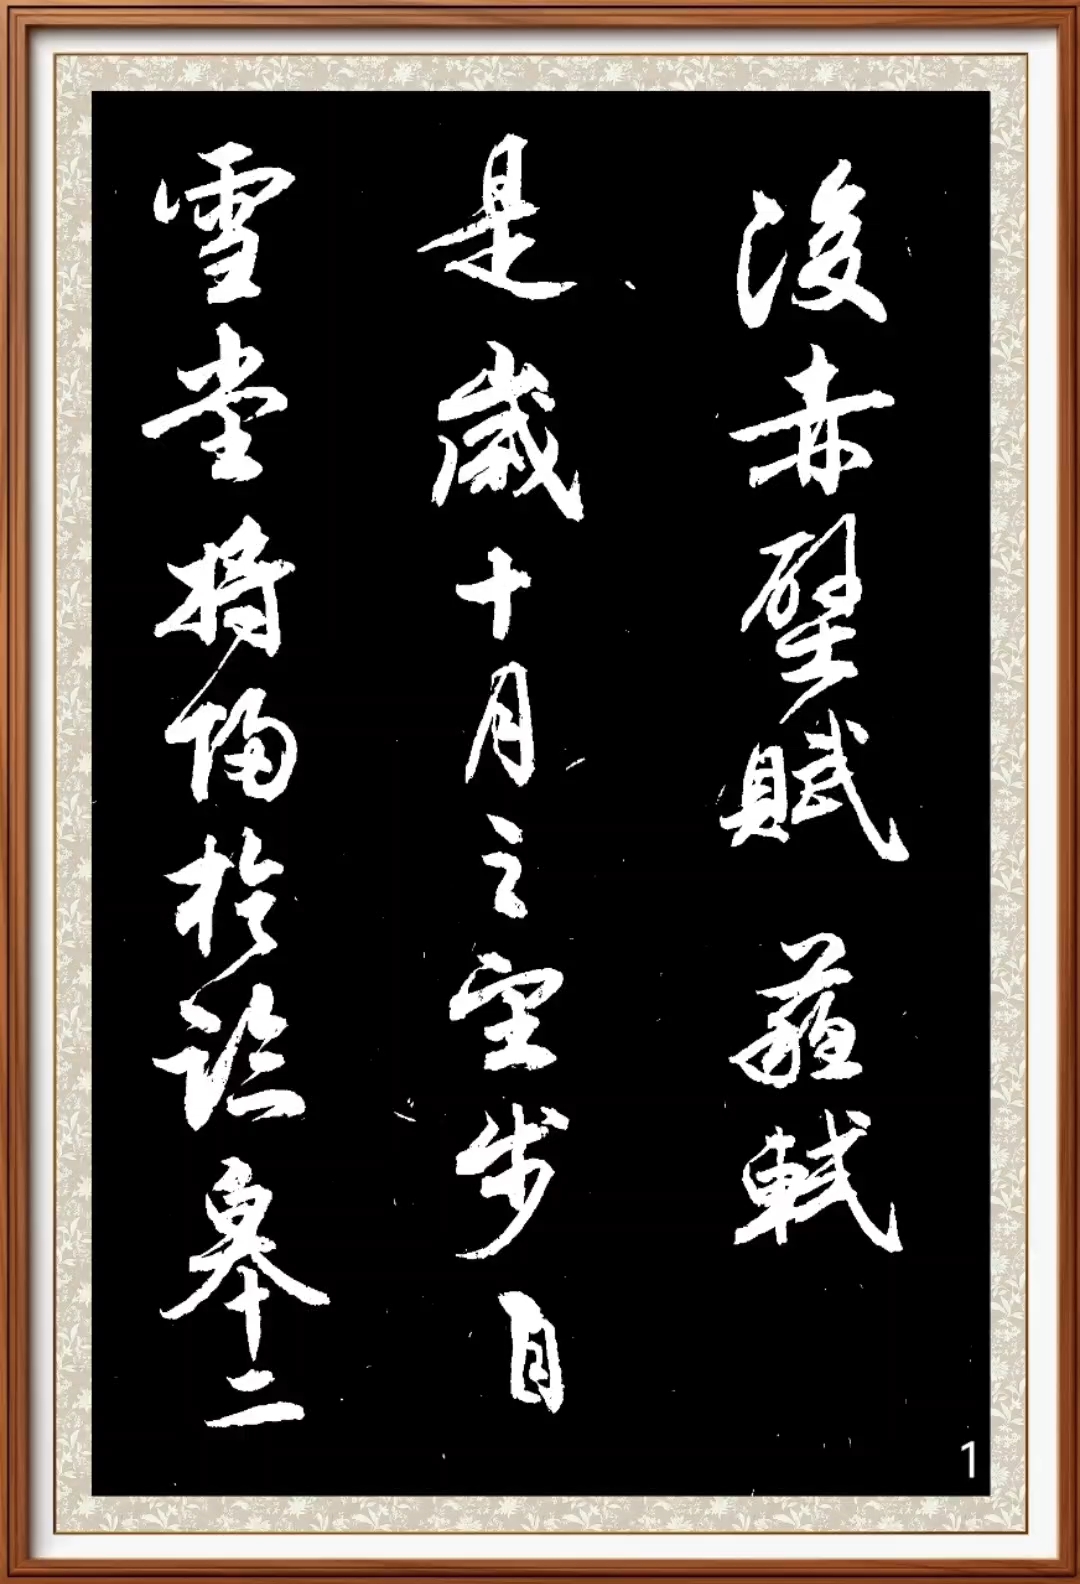 後赤壁賦 蘇軾
是歲十月之望步自
雪堂將歸於臨皋二
1